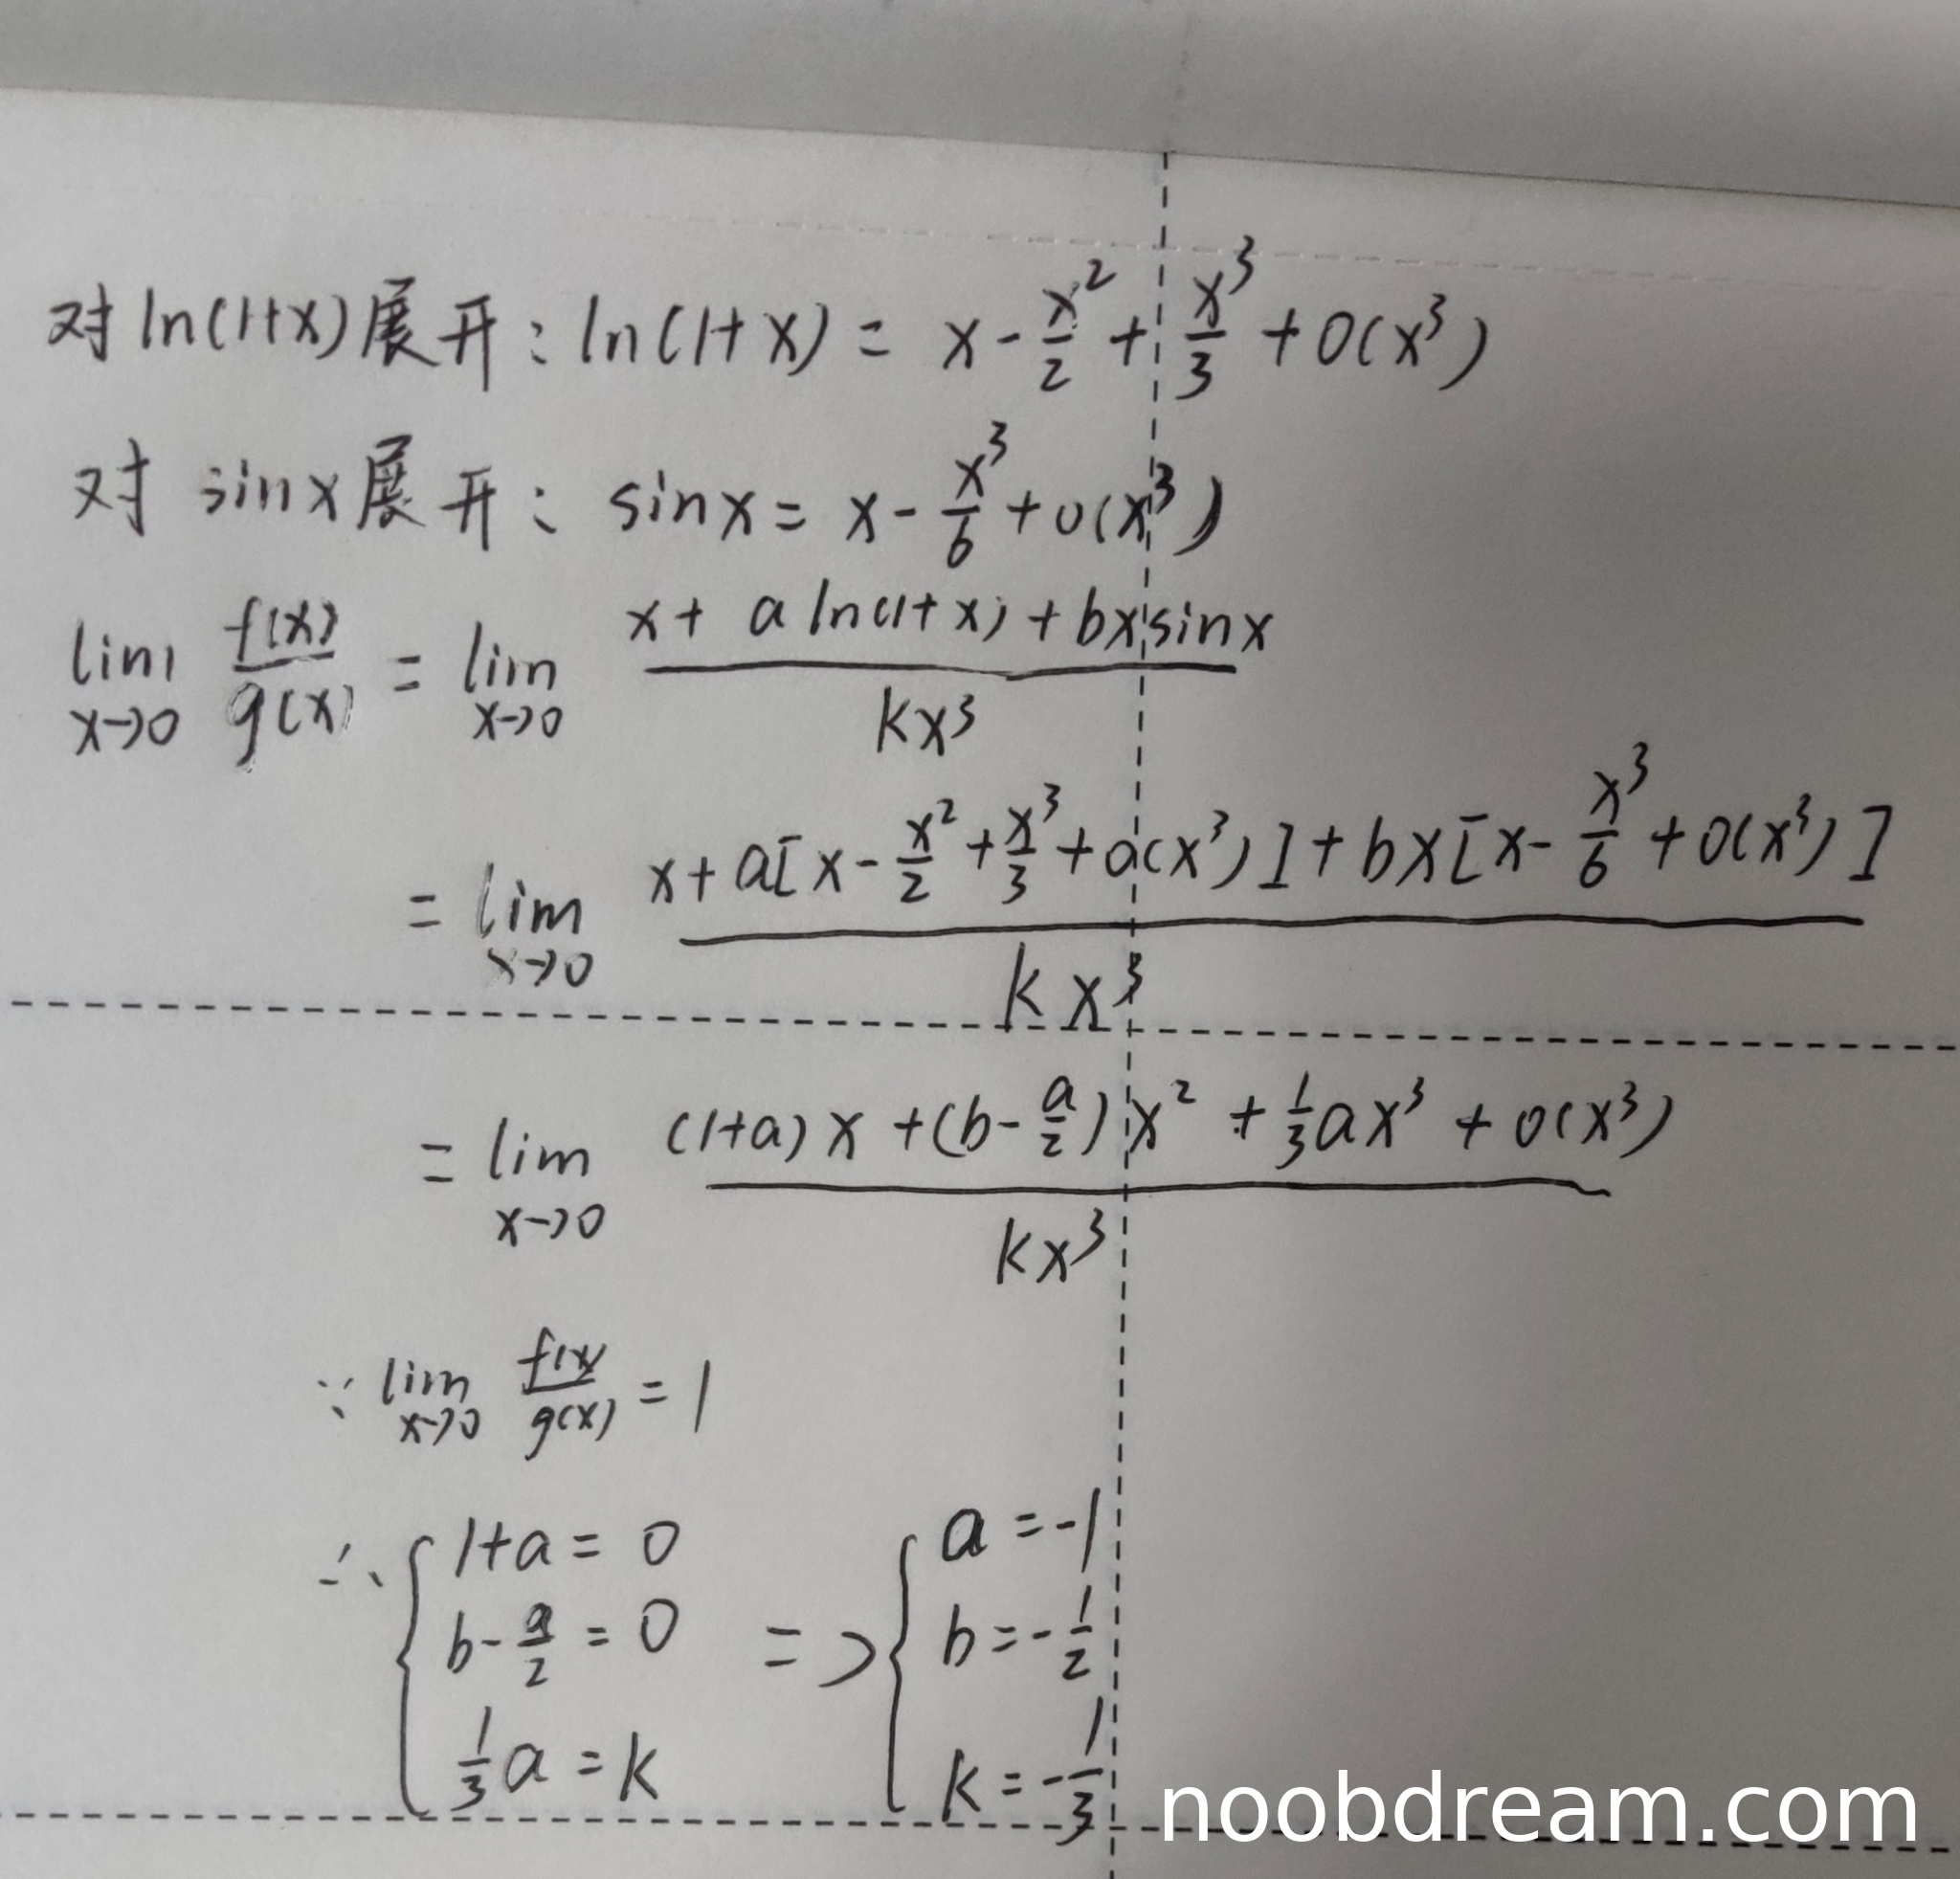 对ln(1+x)展开：ln(1+x) = x - x²/2 + x³/3 + o(x³)
对 sinx展开：sinx = x - x³/6 + o(x³)
lim x→0 f(x)/g(x) = lim x→0 (x + a ln(1+x) + bx sinx)/(kx³)
= lim x→0 (x + a[x - x²/2 + x³/3 + o(x³)] + bx[x - x³/6 + o(x³)])/(kx³)
= lim x→0 ((1+a)x + (b - a/2)x² + 1/3 ax³ + o(x³))/(kx³)
∵ lim x→0 f(x)/g(x) = 1
∴ { 1+a = 0 => { a = -1
b - a/2 = 0 b = -1/2
1/3 a = k k = -1/3
noobdream.com